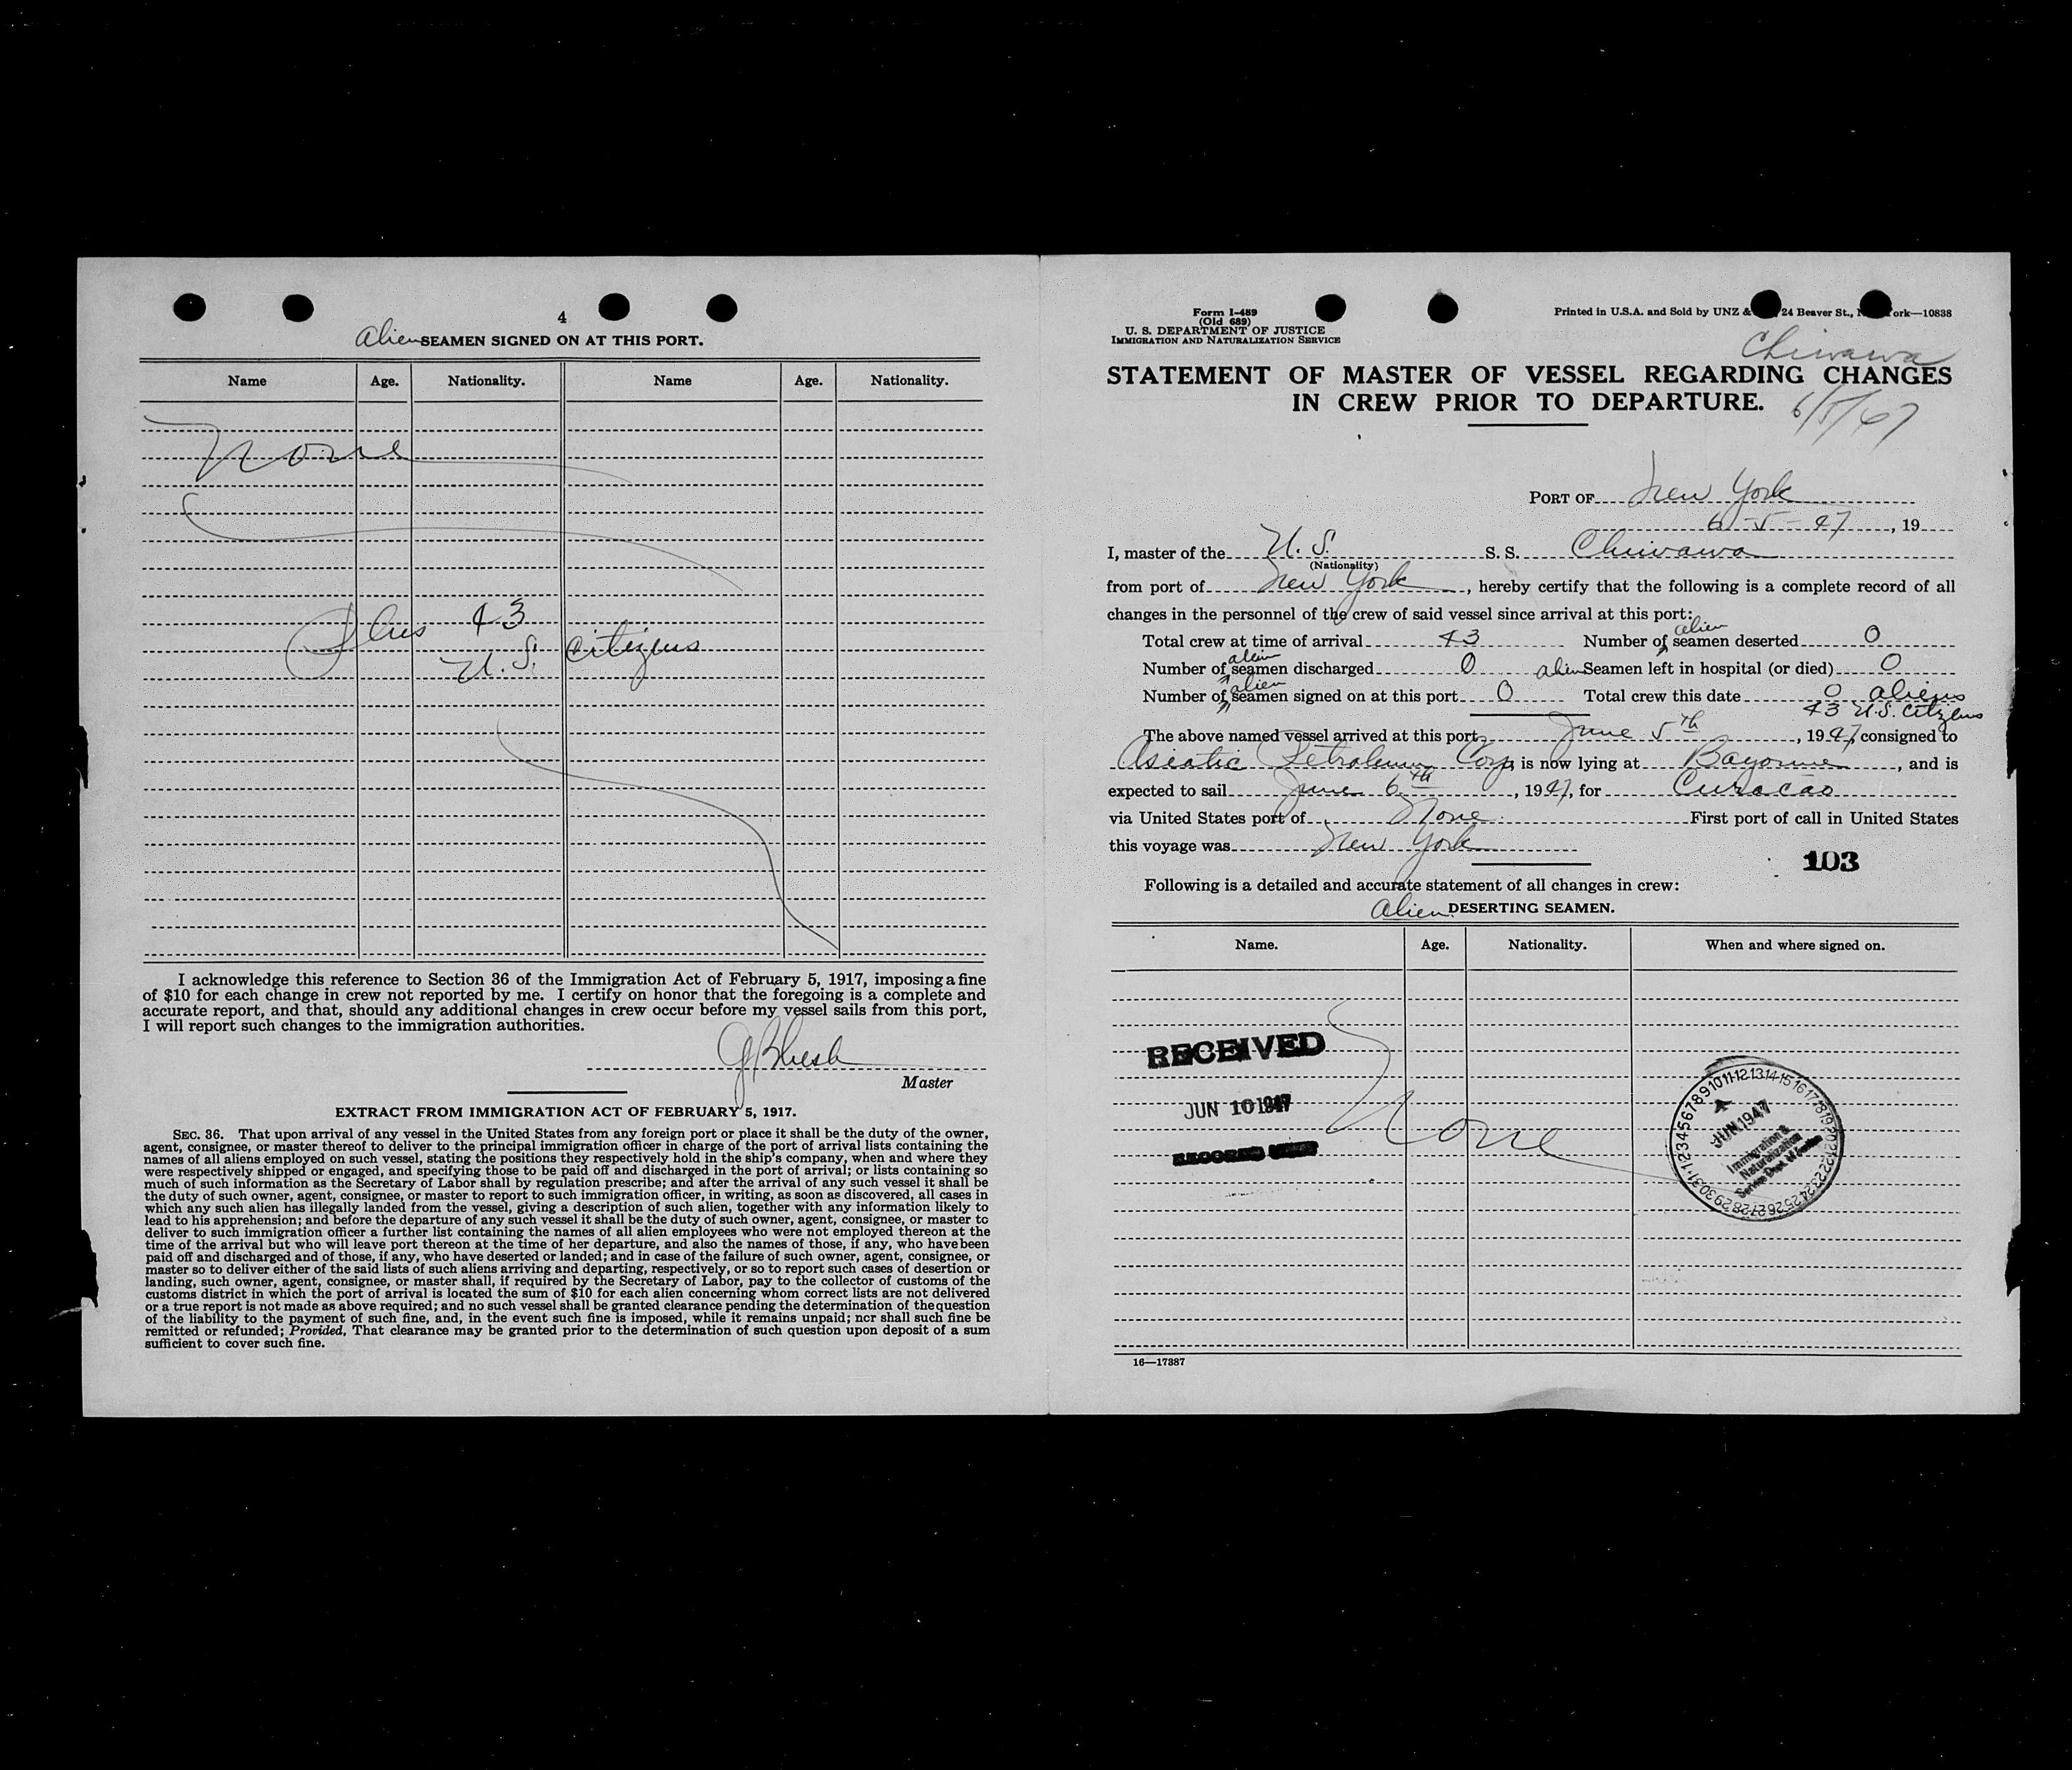 4
Alien SEAMEN SIGNED ON AT THIS PORT.
Name Age. Nationality. Name Age. Nationality.
None
Plus 43
U.S. citizens
I acknowledge this reference to Section 36 of the Immigration Act of February 5, 1917, imposing a fine
of $10 for each change in crew not reported by me. I certify on honor that the foregoing is a complete and
accurate report, and that, should any additional changes in crew occur before my vessel sails from this port,
I will report such changes to the immigration authorities.
Master
EXTRACT FROM IMMIGRATION ACT OF FEBRUARY 5, 1917.
SEC. 36. That upon arrival of any vessel in the United States from any foreign port or place it shall be the duty of the owner,
agent, consignee, or master thereof to deliver to the principal immigration officer in charge of the port of arrival lists containing the
names of all aliens employed on such vessel, stating the positions they respectively hold in the ship's company, when and where they
were respectively shipped or engaged, and specifying those to be paid off and discharged in the port of arrival; or lists containing so
much of such information as the Secretary of Labor shall by regulation prescribe; and after the arrival of any such vessel it shall be
the duty of such owner, agent, consignee, or master to report to such immigration officer, in writing, as soon as discovered, all cases in
which any such alien has illegally landed from the vessel, giving a description of such alien, together with any information likely to
lead to his apprehension; and before the departure of any such vessel it shall be the duty of such owner, agent, consignee, or master to
deliver to such immigration officer a further list containing the names of all alien employees who were not employed thereon at the
time of the arrival but who will leave port thereon at the time of her departure, and also the names of those, if any, who have been
paid off and discharged and of those, if any, who have deserted or landed; and in case of the failure of such owner, agent, consignee, or
master so to deliver either of the said lists of such aliens arriving and departing, respectively, or so to report such cases of desertion or
landing, such owner, agent, consignee, or master shall, if required by the Secretary of Labor, pay to the collector of customs of the
customs district in which the port of arrival is located the sum of $10 for each alien concerning whom correct lists are not delivered
or a true report is not made as above required; and no such vessel shall be granted clearance pending the determination of the question
of the liability to the payment of such fine, and, in the event such fine is imposed, while it remains unpaid; nor shall such fine be
remitted or refunded; Provided, That clearance may be granted prior to the determination of such question upon deposit of a sum
sufficient to cover such fine.
Form I-489
(Old 689)
U. S. DEPARTMENT OF JUSTICE
IMMIGRATION AND NATURALIZATION SERVICE
Printed in U.S.A. and Sold by UNZ & 24 Beaver St., ork—10838
Chiwawa
STATEMENT OF MASTER OF VESSEL REGARDING CHANGES
IN CREW PRIOR TO DEPARTURE.
6/5/47
PORT OF New York
6-5-47, 19
I, master of the U.S. S. S. Chiwawa
(Nationality)
from port of New York, hereby certify that the following is a complete record of all
changes in the personnel of the crew of said vessel since arrival at this port:
Total crew at time of arrival 43 Number of alien seamen deserted 0
Number of alien seamen discharged 0 alien Seamen left in hospital (or died) 0
Number of alien seamen signed on at this port 0 Total crew this date 0 aliens
43 U.S. citizens
The above named vessel arrived at this port June 5th, 1947, consigned to
Asiatic Petroleum Corp, is now lying at Bayonne, and is
expected to sail June 6th, 1947, for Curacao
via United States port of None. First port of call in United States
this voyage was New York
103
Following is a detailed and accurate statement of all changes in crew:
Alien DESERTING SEAMEN.
Name. Age. Nationality. When and where signed on.
RECEIVED
JUN 10 1947
None
1 2 3 4 5 6 7 8 9 10 11 12 13 14 15 16 17 18 19 20 21 22 23 24 25 26 27 28 29 30 31
JUN 1947
Immigration &
Naturalization
Service Dept. of Justice
16—17387